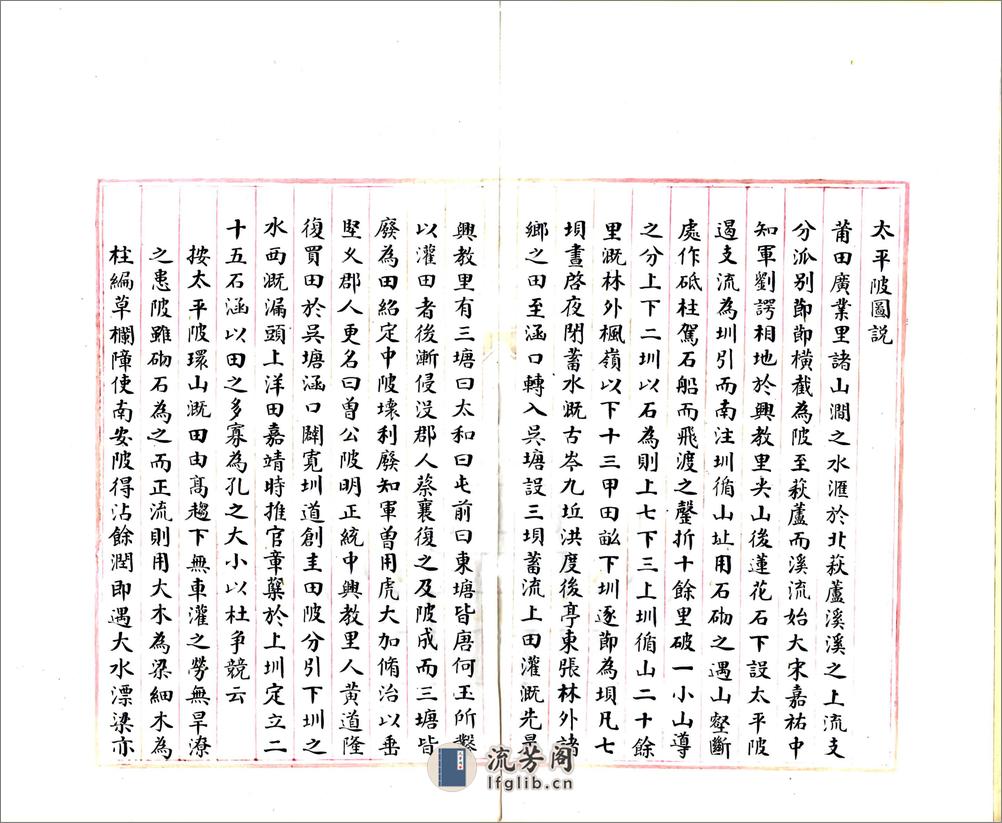 太平陂圖說
莆田廣業里諸山澗之水滙於北萩蘆溪溪之上流支
分派別節節橫截為陂至萩蘆而溪流始大宋嘉祐中
知軍劉諤相地於興教里尖山後蓮花石下設太平陂
遏支流為圳引而南注圳循山址用石砌之遇山壑斷
處作砥柱駕石船而飛渡之罄折十餘里破一小山導
之分上下二圳以石為則上七下三上圳循山二十餘
里溉林外楓嶺以下十三甲田畆下圳逐節為垻凡七
垻晝啓夜閉蓄水溉古岑九坵洪度後亭東張林外諸
鄉之田至涵口轉入吳塘設三垻蓄流上田灌溉先是
興教里有三塘曰太和曰屯前曰東塘皆唐何玉所鑿
以灌田者後漸侵没郡人蔡襄復之及陂成而三塘皆
廢為田紹定中陂壞利廢知軍曾用虎大加脩治以垂
堅乆郡人更名曰曾公陂明正統中興教里人黃道隆
復買田於吳塘涵口闢寬圳道創圭田陂分引下圳之
水西溉漏頭上洋田嘉靖時推官章蘗於上圳定立二
十五石涵以田之多寡為孔之大小以杜争競云
按太平陂環山溉田由高趨下無車灌之勞無旱潦
之患陂雖砌石為之而正流則用大木為梁細木為
柱編草欄障使南安陂得沾餘潤即遇大水漂梁亦
流芳阁
lfglib.cn